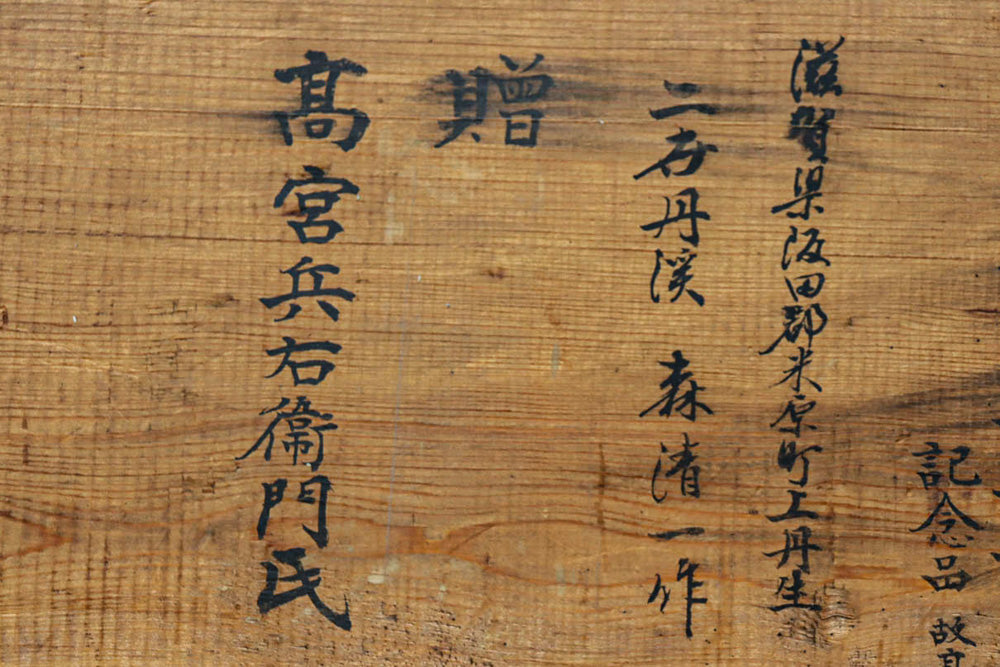 記念品 故
滋賀県阪田郡米原町上丹生
二 丹渓 森清一作
贈
髙宮兵右衞門氏